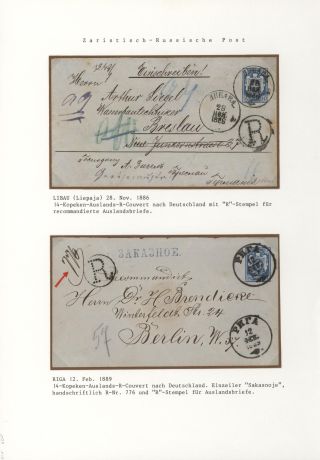 Zaristisch-Russische Post
Einschreiben!
Herrn
Arthur Siegel
Breslau
ЛИБАВА
28
НОЯ
1886
R
LIBAU (Liepaja) 28. Nov. 1886
14-Kopeken-Auslands-R-Couvert nach Deutschland mit "R"-Stempel für
recommandierte Auslandsbriefe.
776
R
ЗАКАЗНОЕ.
РИГА
Recommandirt
Herrn Dr. H. Brendicke
Winterfeldt Str. 24
Berlin, W.
57
РИГА
12
ФЕВ.
1889
RIGA 12. Feb. 1889
14-Kopeken-Auslands-R-Couvert nach Deutschland. Einzeiler "Sakasnoje",
handschriftlich R-Nr. 776 und "R"-Stempel für Auslandsbriefe.